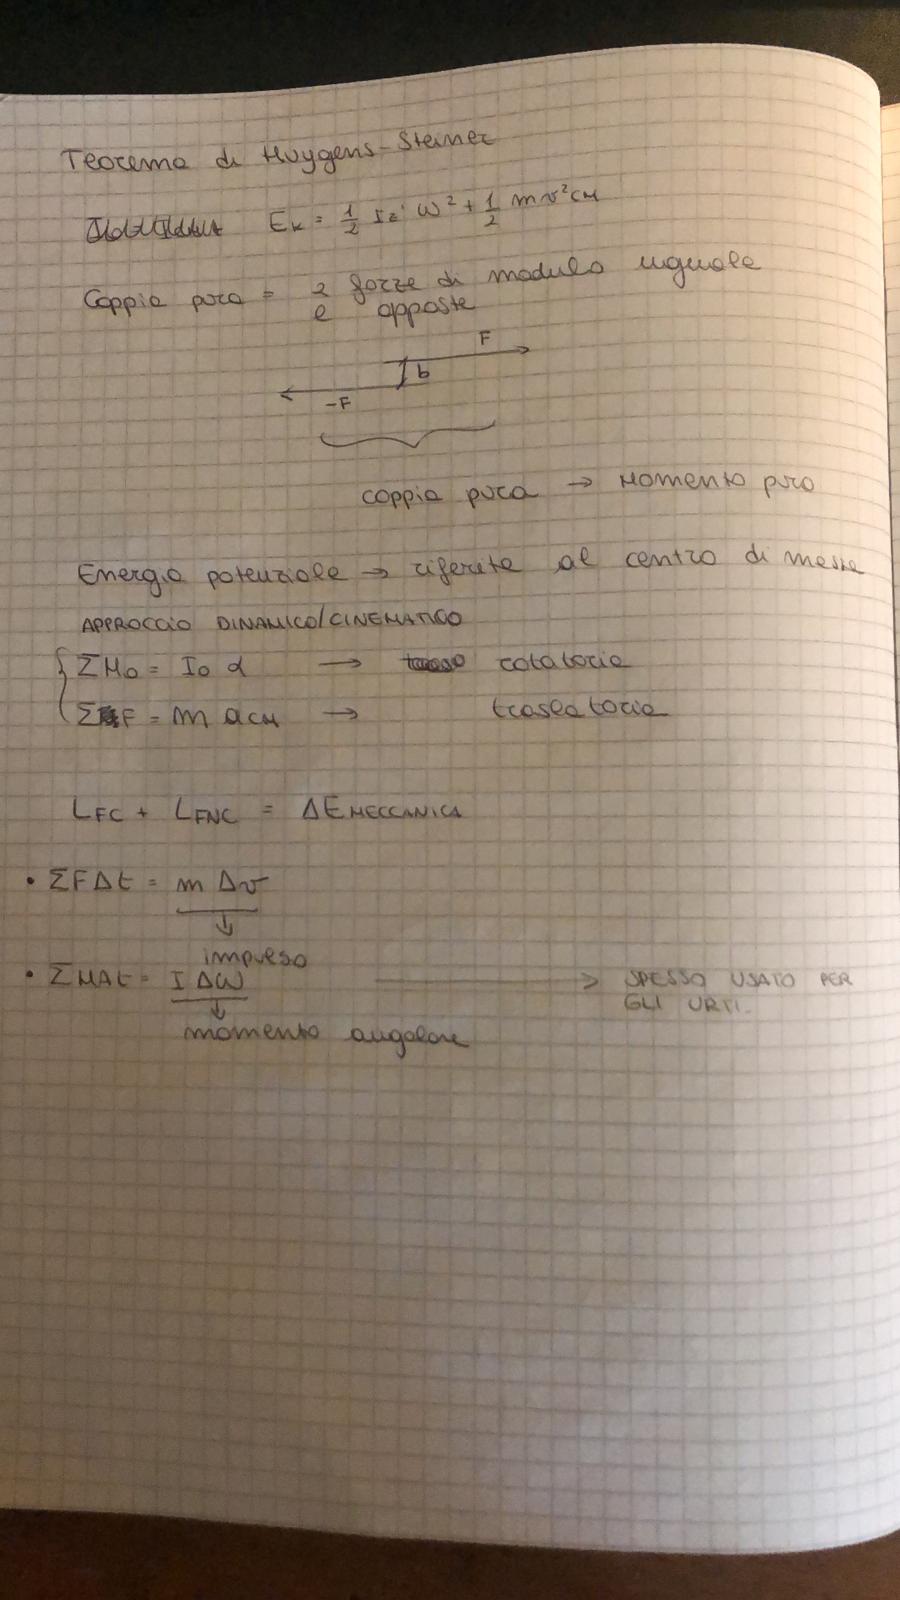 Teorema di Huygens-Steiner
Ek = 1/2 Iz' ω² + 1/2 mv²CM
Coppia pura = 2 forze di modulo uguale
e opposte
F
b
-F
coppia pura → Momento puro
Energia potenziale → riferita al centro di massa
APPROCCIO DINAMICO/CINEMATICO
ΣMo = Io α → rotatoria
ΣF = m aCM → traslatoria
LFC + LFNC = ΔEMECCANICA
• ΣFΔt = m Δv
↓
impulso
• ΣMΔt = I Δω → SPESSO USATO PER
GLI URTI.
↓
momento angolare